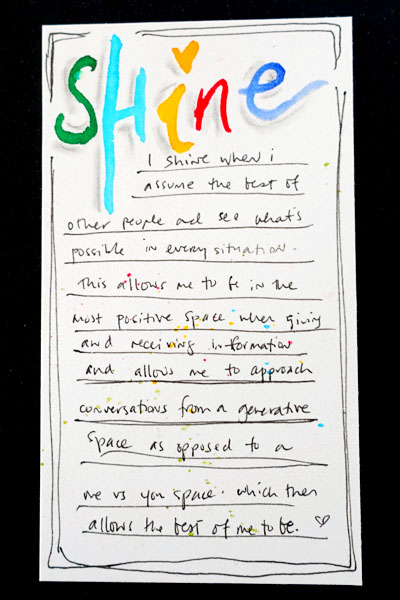 SHine
I shine when i
assume the best of
other people and see what's
possible in every situation.
This allows me to be in the
most positive space when giving
and receiving information
and allows me to approach
conversations from a generative
space as opposed to a
me vs you space. which then
allows the best of me to be.